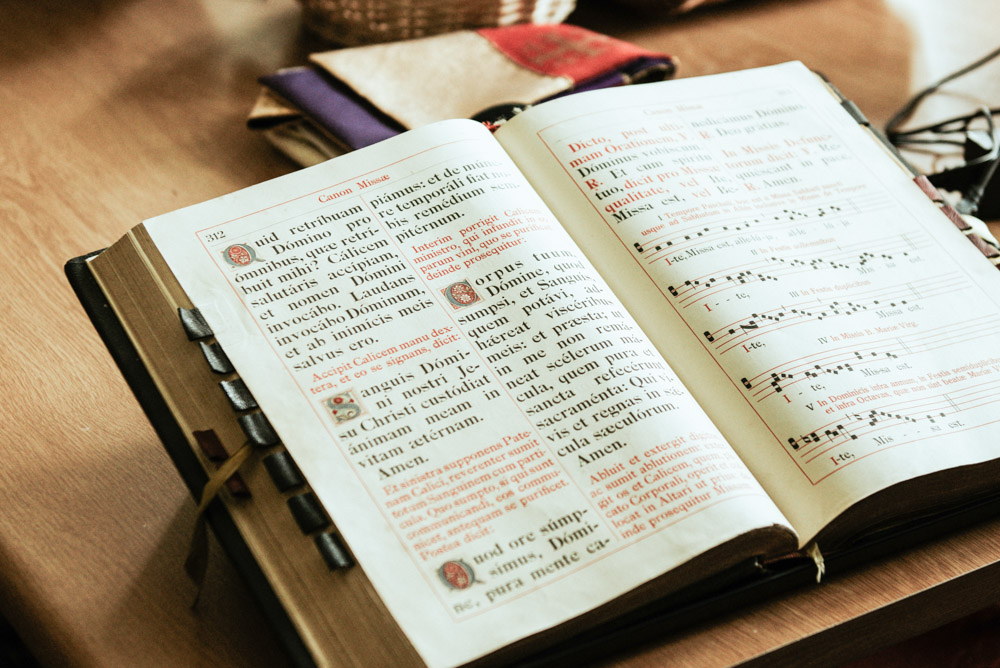 312
Canon Missæ
Quid retríbuam
Dómino pro
ómnibus, quæ retrí-
buit mihi? Cálicem
salutáris accípiam,
et nomen Dómini
invocábo. Laudans
invocábo Dóminum,
et ab inimícis meis
salvus ero.
Accipit Calicem manu dex-
tera, et eo se signans, dicit:
Sanguis Dómi-
ni nostri Je-
su Christi custódiat
ánimam meam in
vitam ætérnam.
Amen.
Et sinistra supponens Pate-
nam Calici, reverenter sumit
totum Sanguinem cum parti-
cula. Quo sumpto, si qui sunt
communicandi, eos commu-
nicet, antequam se purificet.
Postea dicit:
Quod ore súmp-
simus, Dómi-
ne, pura mente ca-
piámus: et de múne-
re temporáli fiat no-
bis remédium sem-
pitérnum.
Interim porrigit Calicem
ministro, qui infundit in eo
parum vini, quo se purificat:
deinde prosequitur:
Corpus tuum,
Dómine, quod
sumpsi, et Sanguis,
quem potávi, ad-
hǽreat viscéribus
meis: et præsta; ut
in me non remá-
neat scélerum má-
cula, quem pura et
sancta refecérunt
sacraménta: Qui vi-
vis et regnas in sǽ-
cula sæculórum.
Amen.
Abluit et extergit digitos,
ac sumit ablutionem: exter-
git os et Calicem, quem
cato Corporali, operit et col-
locat in Altari ut prius:
inde prosequitur Missam.
Canon Missæ
Dicto, post ulti-
mam Orationem, V.
Dóminus vobíscum.
R. Et cum spíritu
tuo, dicit pro Missæ
qualitate, vel
Missa est,
nedicámus Dómino.
R. Deo grátias.
In Missis Defun-
ctorum dicit V. Re-
quiéscant in pace.
R. Amen.
I-te, Missa est, alle-lú-ia, al-le-lú-ia.
II In Festis solemnibus
I - te, Mis-sa est.
III In Festis duplicibus
I-te, Mis-sa est.
IV In Missis B. Mariæ Virg.
I - te, Mis-sa est.
V In Dominicis infra annum, in Festis semiduplicibus
et infra Octavas, quæ non sunt beatæ Mariæ
I-te, Mis - sa est.